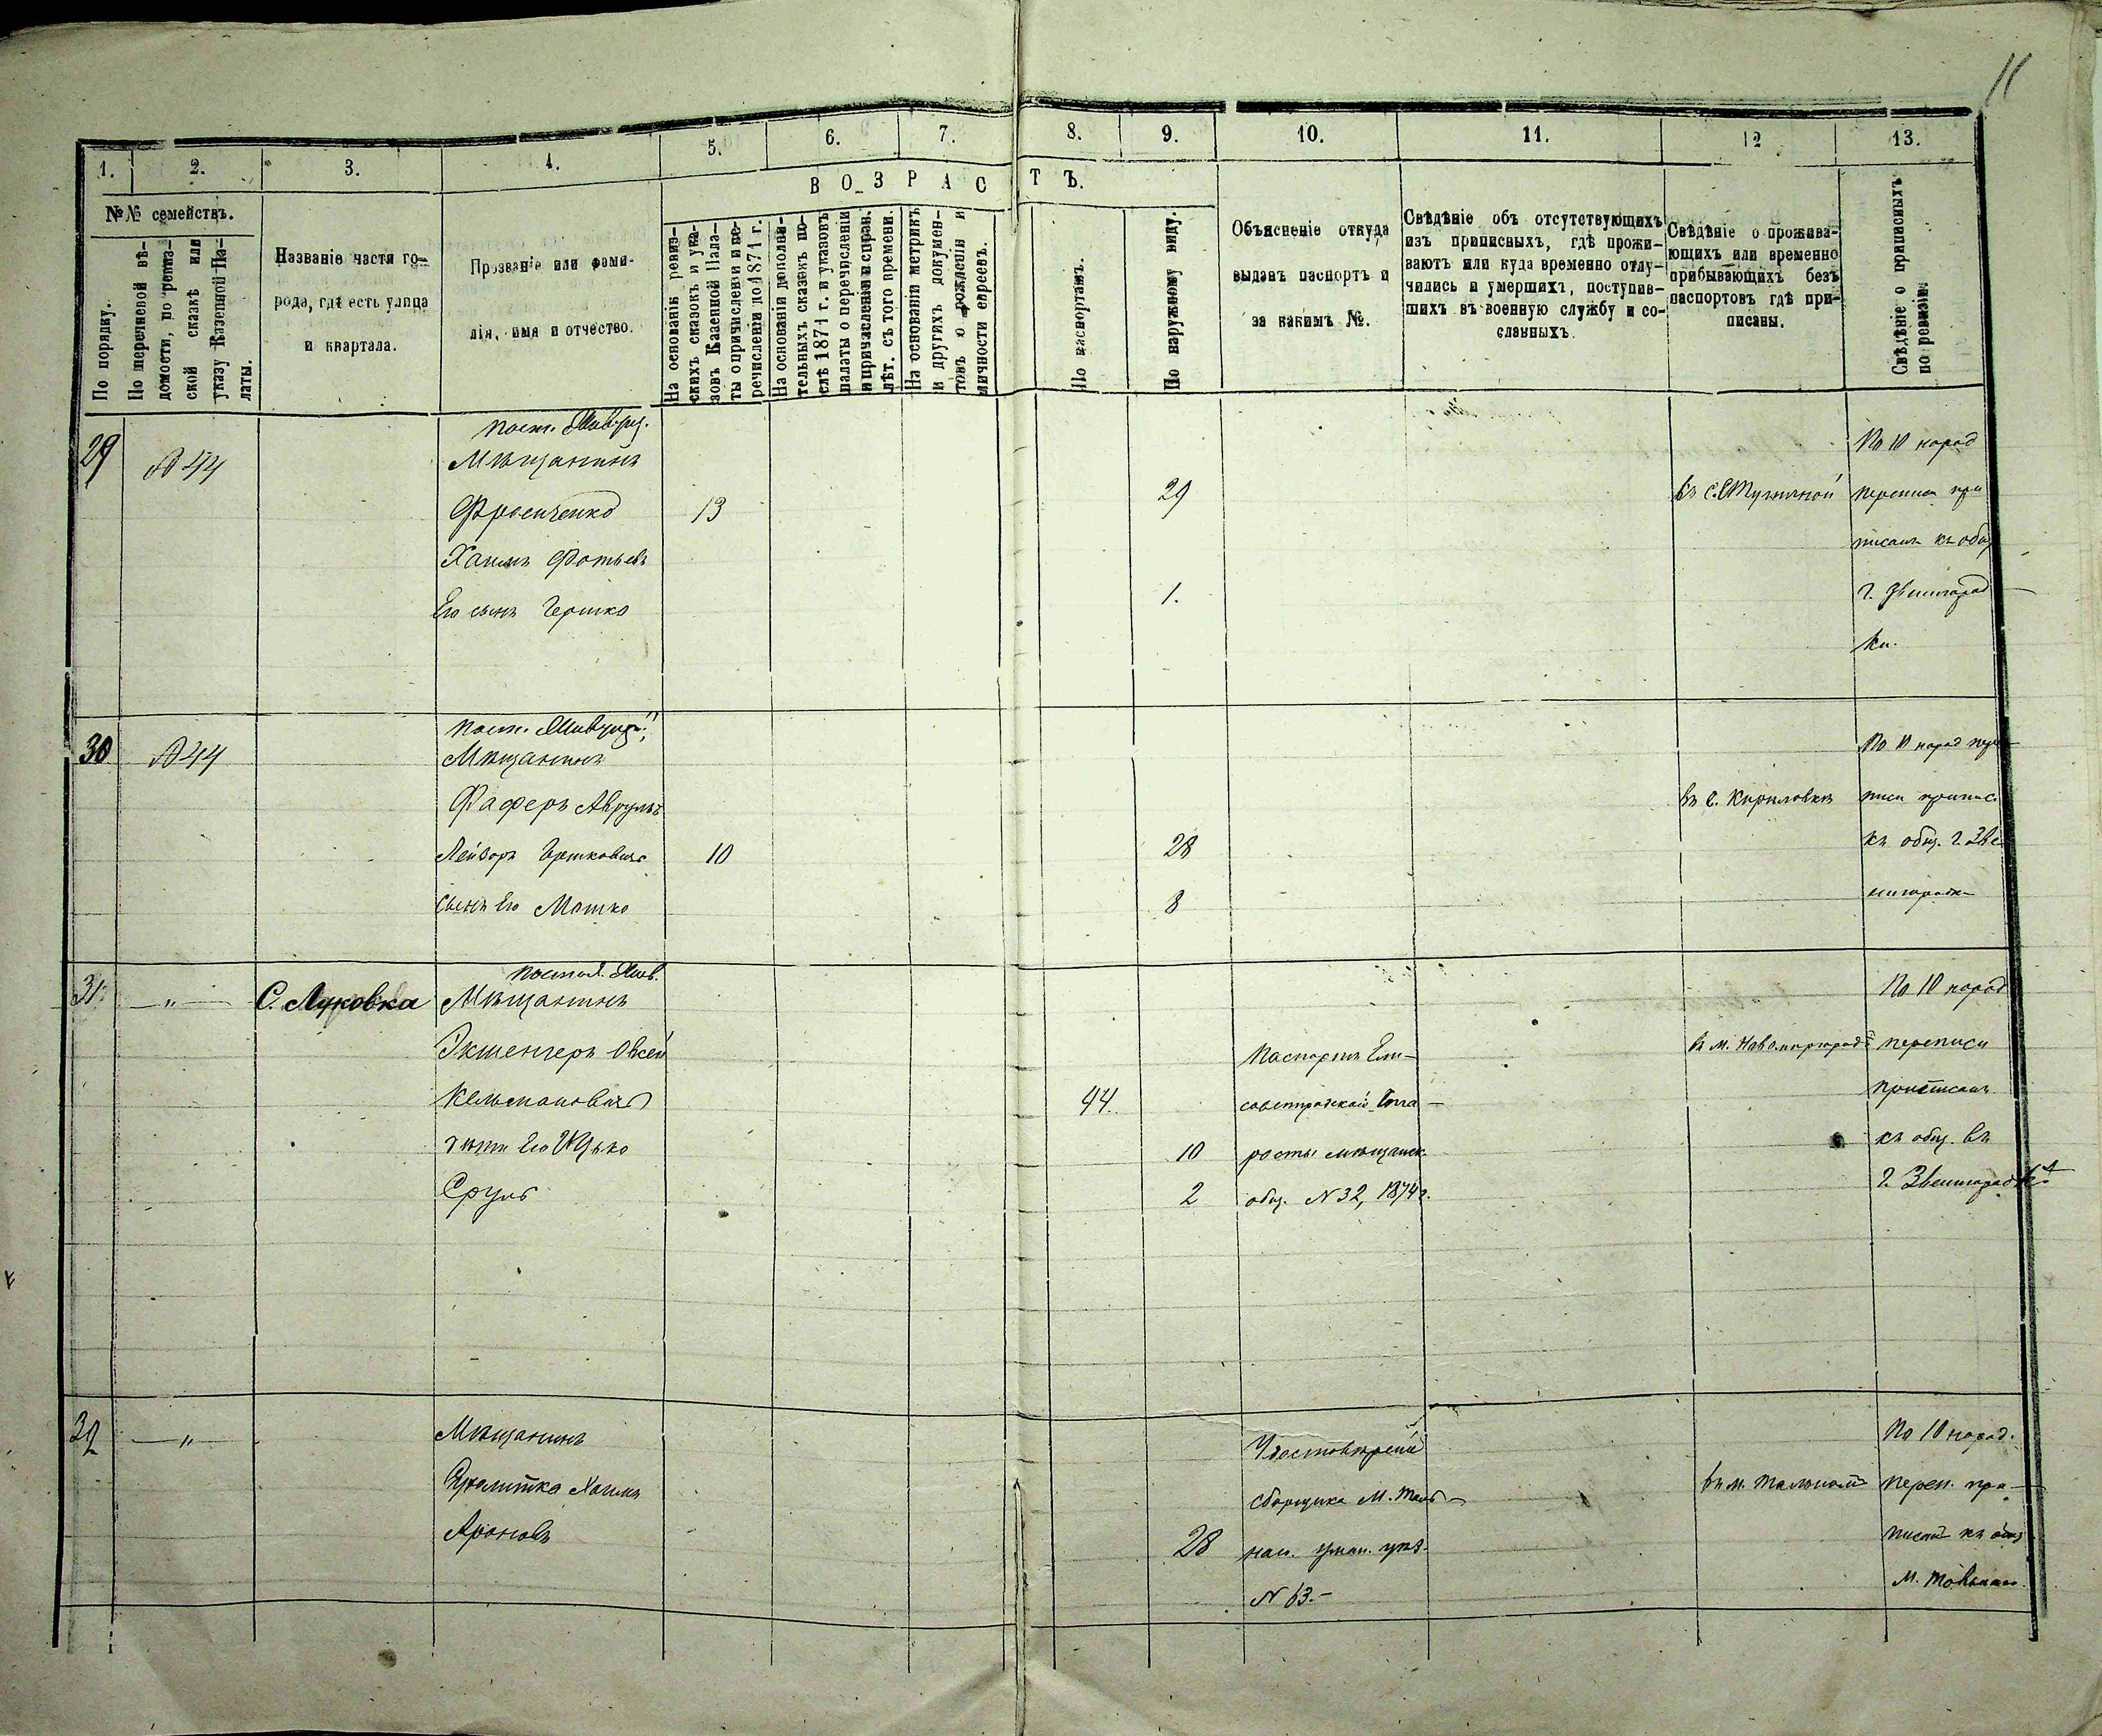 11
1. 2. 3. 4. 5. 6. 7. 8. 9. 10. 11. 12 13.
ВОЗРАСТЪ.
№№ семействъ.
По порядку.
По перечневой вѣ-
домости, по ревиз-
ской сказкѣ или
указу Казенной Па-
латы.
Названіе части го-
рода, гдѣ есть улица
и квартала.
Прозваніе или фами-
лія, имя и отчество.
На основаніи ревиз-
скихъ сказокъ и ука-
зовъ Казенной Пала-
ты о причисленіи и пе-
речисленіи до 1871 г.
На основаніи дополни-
тельныхъ сказокъ по-
слѣ 1871 г. и указовъ
палаты о перечисленіи
и причисленіи и справ.
лѣт. съ того времени.
На основаніи метрикъ
и другихъ докумен-
товъ о рожденіи и
личности евреевъ.
По паспортамъ.
По наружному виду.
Объясненіе откуда
выданъ паспортъ и
за какимъ №.
Свѣдѣніе объ отсутствующихъ
изъ приписныхъ, гдѣ прожи-
ваютъ или куда временно отлу-
чились и умершихъ, поступив-
шихъ въ военную службу и со-
сланныхъ.
Свѣдѣніе о прожива-
ющихъ или временно
прибывающихъ безъ
паспортовъ гдѣ при-
писаны.
Свѣдѣніе о приписныхъ
по ревизіи.
29 №44
Мѣщанинъ
13 29
Хаимъ
Его сынъ Гершко 1.
По 10 народ
переписи при
писанъ къ общ
г. Звенигород
ки.
30 №44
Мѣщанинъ
Фаферъ Аврумъ
Лейзоръ Гершковичъ 10 28
сынъ Его Мошко 8
въ с. Кириловкѣ
По 10 народ пере
писи припис.
къ общ. г. Зве
нигородк
31 — „ — С. Луковка
Мѣщанинъ
Овсей
Кельмановичъ 44.
дѣти Его Ицько 10
Сруль 2
Паспортъ Ели-
мѣщанск.
общ. N 32, 1874 г.
въ м. Новомиргородѣ
По 10 народ
переписи
приписанъ
къ общ. въ
г. Звенигородкѣ
32 — „ —
Мѣщанинъ
Хаимъ
Ароновъ 28
Удостовѣреніе
сборщика М. Таль-
наго уман. уѣз.
N 63.-
въ м. Тальномъ
По 10 народ.
переп. при-
писанъ къ общ
м.